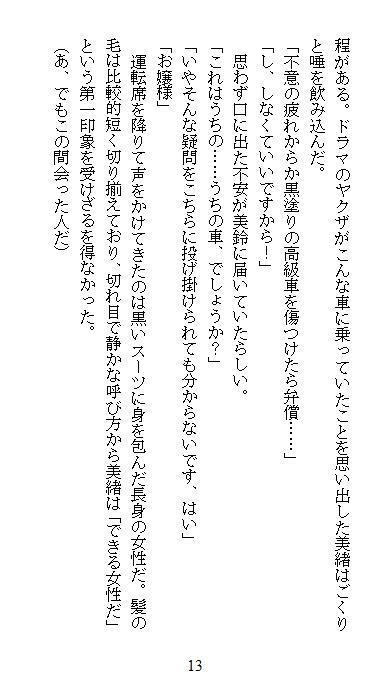 程がある。ドラマのヤクザがこんな車に乗っていたことを思い出した美緒はごくり
と唾を飲み込んだ。
「不意の疲れからか黒塗りの高級車を傷つけたら弁償……」
「し、しなくていいですから！」
思わず口に出た不安が美鈴に届いていたらしい。
「これはうちの……うちの車、でしょうか？」
「いやそんな疑問をこちらに投げ掛けられても分からないです、はい」
「お嬢様」
運転席を降りて声をかけてきたのは黒いスーツに身を包んだ長身の女性だ。髪の
毛は比較的短く切り揃えており、切れ目で静かな呼び方から美緒は「できる女性だ」
という第一印象を受けざるを得なかった。
（あ、でもこの間会った人だ）
13